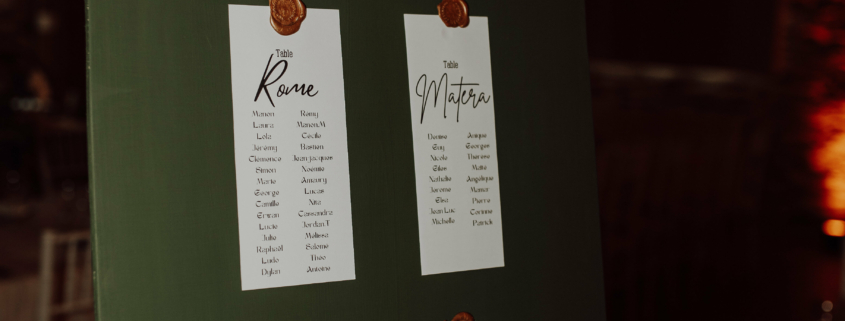 Table
Rome
Manon Remy
Laura ManonM
Lola Cecile
Jeremy Bastien
Clémence Jean jacques
Simon Noemie
Marie Amaury
George Lucas
Camille Nita
Erwan Cassandra
Lucie Jordan T
Julie Melissa
Raphaël Salome
Ludo Theo
Dylan Antoine
Table
Matera
Denise Anique
Guy Georges
Nicole Therese
Giles Maite
Nathalie Angélique
Jerome Manue
Elsa Pierre
Jean Luc Corinne
Michelle Patrick